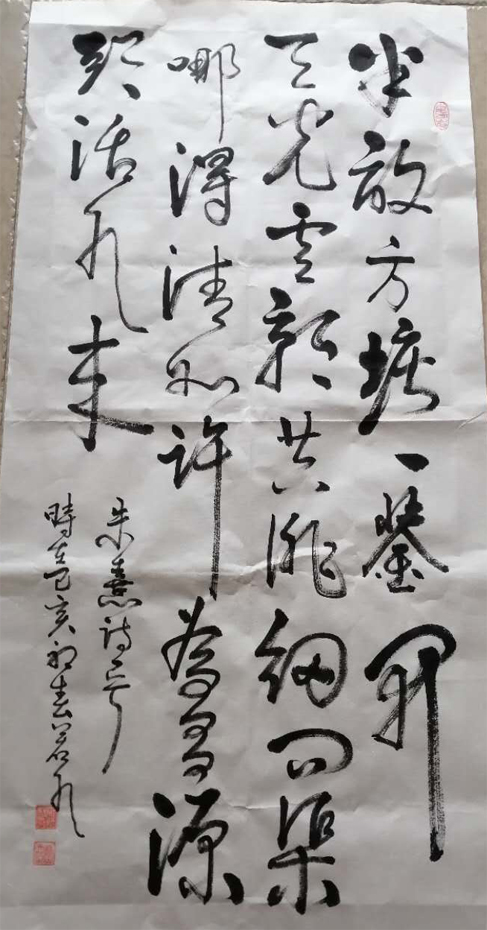 半畝方塘一鑒開
天光雲影共徘徊問渠
哪得清如許為有源
頭活水來
朱熹詩
時在己亥初春若水